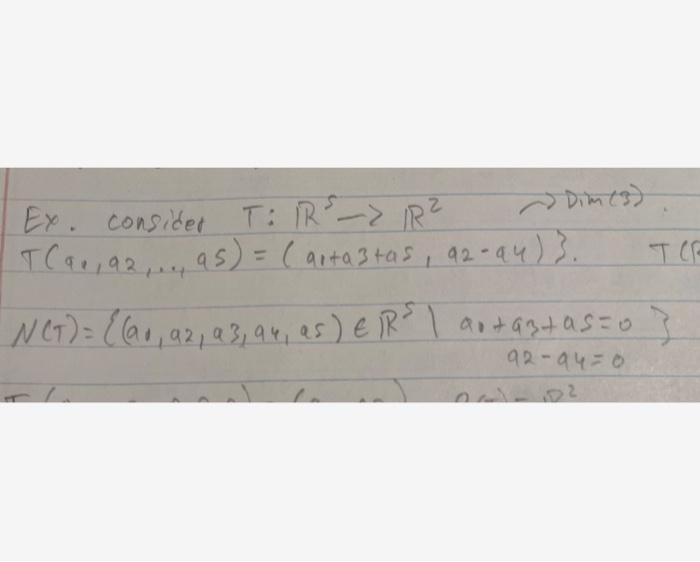 Ex. consider T: ℝ⁵ → ℝ² → Dim(3).
T(a₁, a₂, ..., a₅) = (a₁+a₃+a₅, a₂-a₄)}. T(
N(T) = {(a₁, a₂, a₃, a₄, a₅) ∈ ℝ⁵ | a₁+a₃+a₅=0 }
a₂-a₄=0